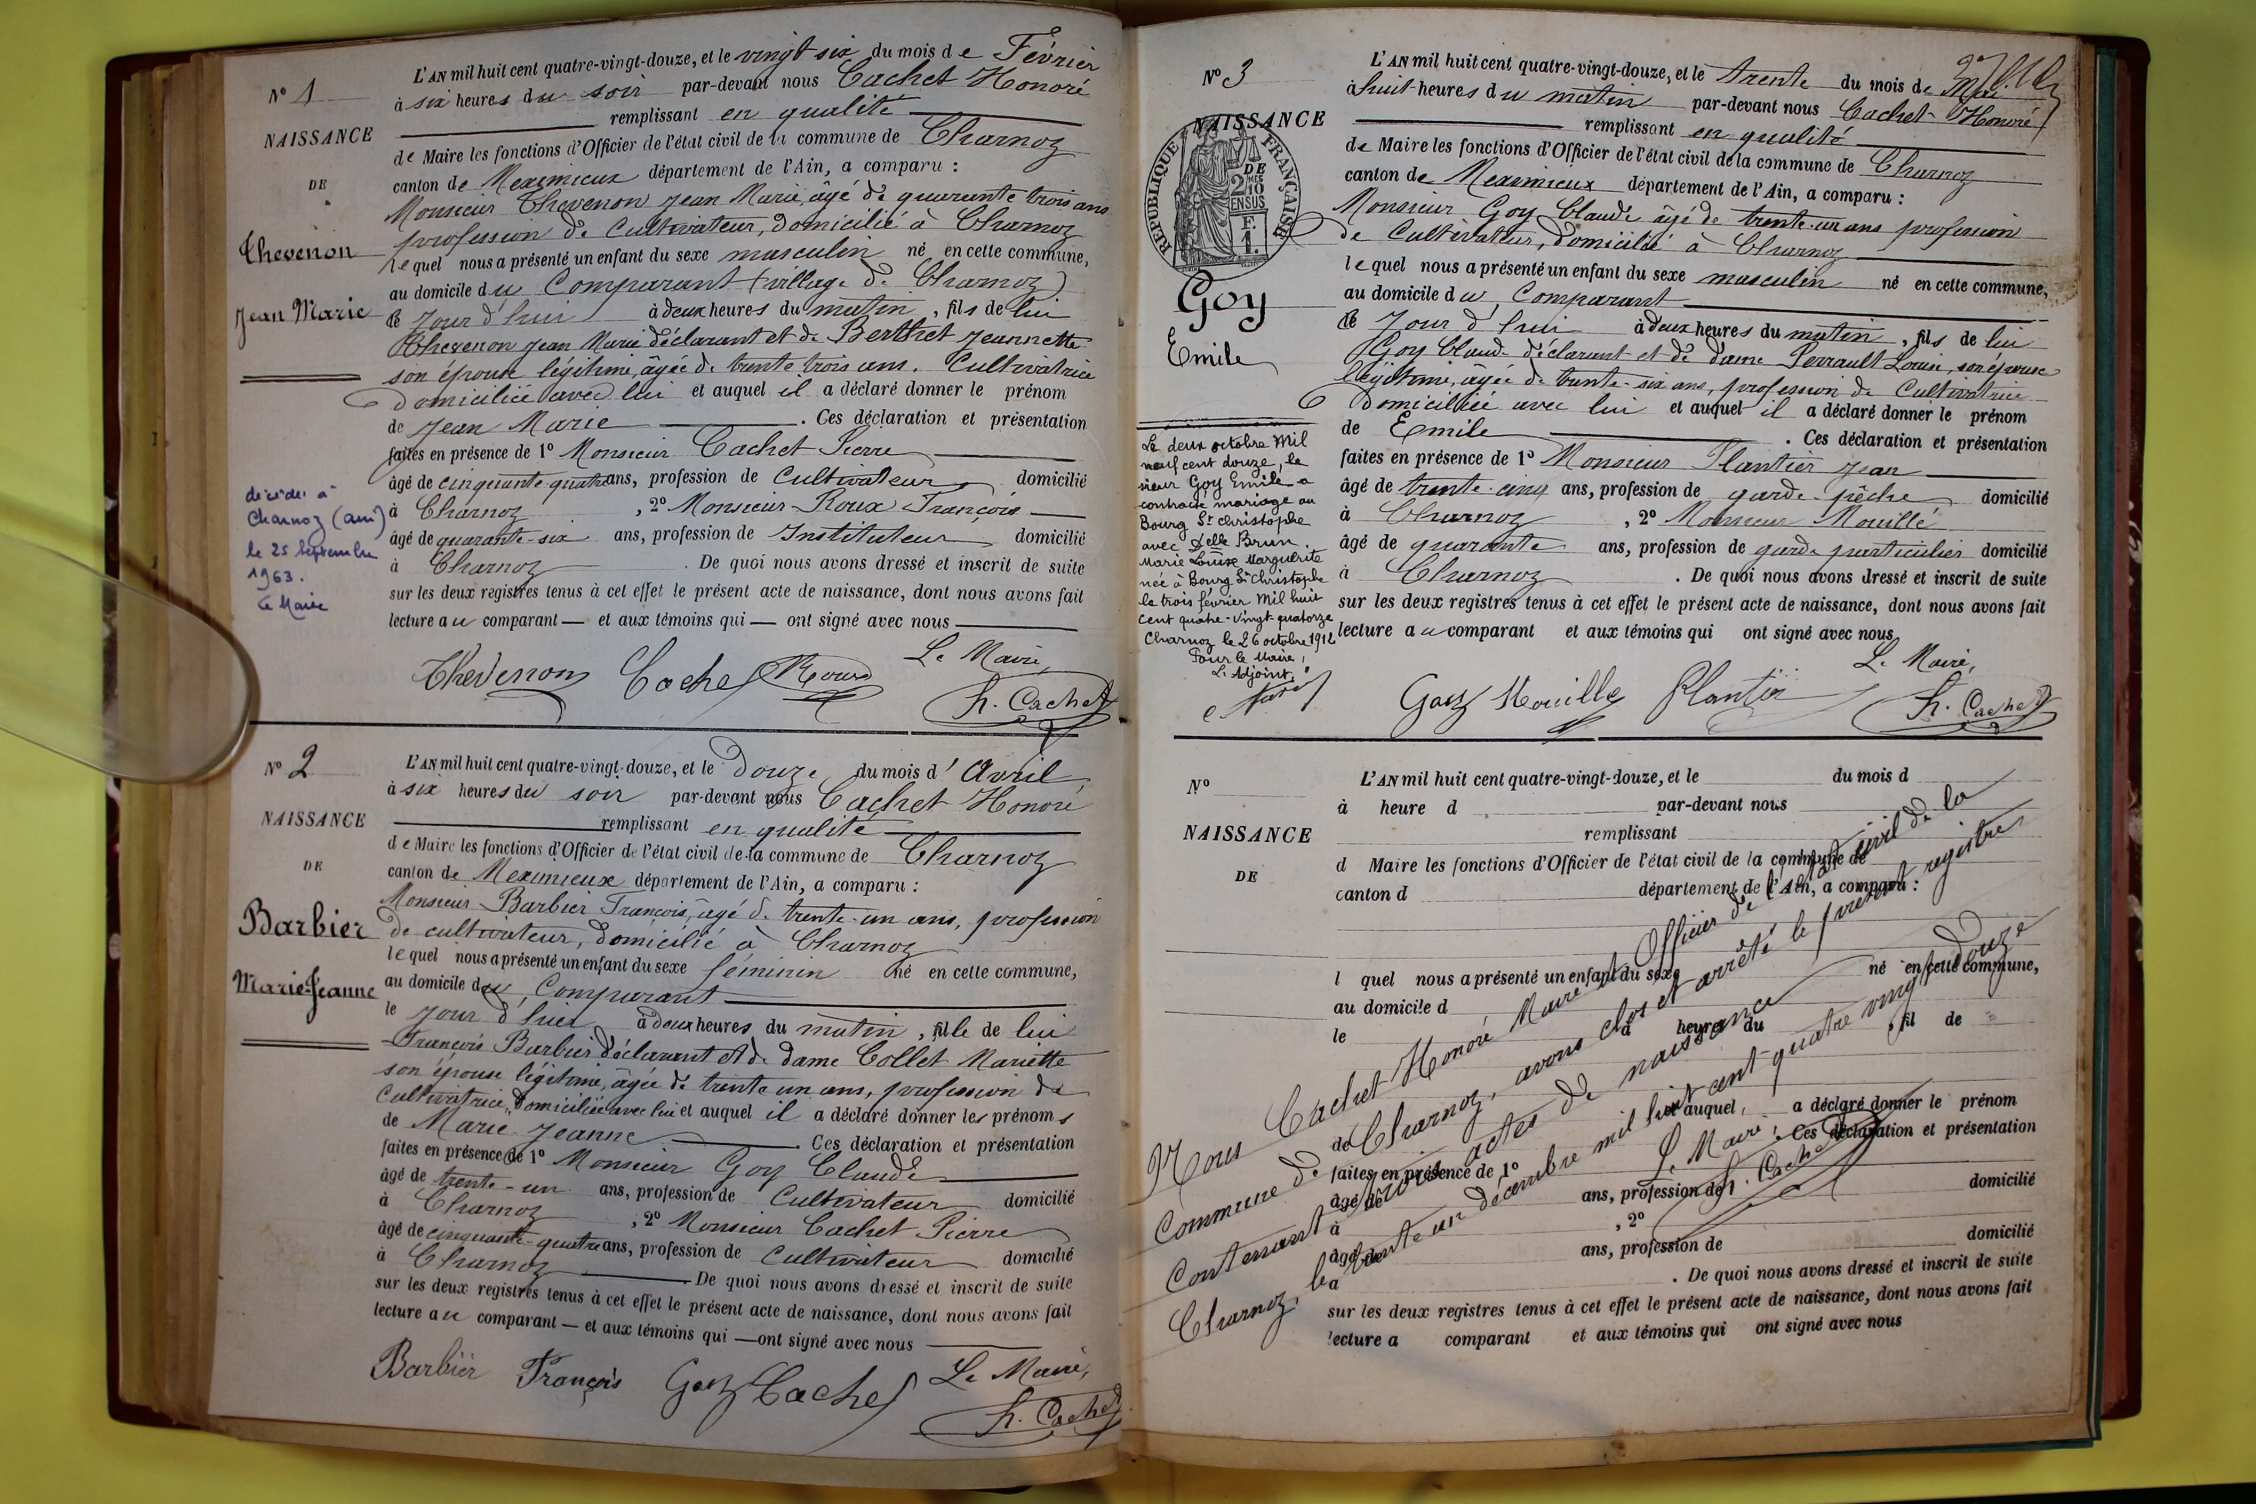 N° 1
NAISSANCE
DE
Thevenon
Jean Marie
décédé à
Charnoz (ain)
le 25 Septembre
1963.
Le Maire
L'AN mil huit cent quatre-vingt-douze, et le vingt six du mois de Février
à six heures du soir par-devant nous Cachet Honoré
remplissant en qualité
de Maire les fonctions d'Officier de l'état civil de la commune de Charnoz
canton de Meximieux département de l'Ain, a comparu :
Monsieur Thevenon Jean Marie, âgé de quarante trois ans
profession de Cultivateur, domicilié à Charnoz
lequel nous a présenté un enfant du sexe masculin né en cette commune,
au domicile du Comparant (village de Charnoz)
le jour d'hui à deux heures du matin, fils de lui
Thevenon Jean Marie déclarant et de Berthet Jeannette
son épouse légitime, âgée de trente trois ans. Cultivatrice
domiciliée avec lui et auquel il a déclaré donner le prénom
de Jean Marie . Ces déclaration et présentation
faites en présence de 1° Monsieur Cachet Pierre
âgé de cinquante-quatre ans, profession de Cultivateur domicilié
à Charnoz , 2° Monsieur Roux François
âgé de quarante-six ans, profession de Instituteur domicilié
à Charnoz . De quoi nous avons dressé et inscrit de suite
sur les deux registres tenus à cet effet le présent acte de naissance, dont nous avons fait
lecture au comparant — et aux témoins qui — ont signé avec nous
Thevenon Cachet Roux Le Maire,
h. Cachet
N° 2
NAISSANCE
DE
Barbier
Marie-Jeanne
L'AN mil huit cent quatre-vingt-douze, et le Douze du mois d'Avril
à six heures du soir par-devant nous Cachet Honoré
remplissant en qualité
de Maire les fonctions d'Officier de l'état civil de la commune de Charnoz
canton de Meximieux département de l'Ain, a comparu :
Monsieur Barbier François, âgé de trente-un ans, profession
de cultivateur, domicilié à Charnoz
lequel nous a présenté un enfant du sexe féminin né en cette commune,
au domicile du Comparant
le jour d'hui à deux heures du matin, fille de lui
François Barbier déclarant et de dame Collet Mariette
son épouse légitime, âgée de trente un ans, profession de
Cultivatrice, domiciliée avec lui et auquel il a déclaré donner les prénoms
de Marie Jeanne . Ces déclaration et présentation
faites en présence de 1° Monsieur Goy Claude
âgé de trente-un ans, profession de Cultivateur domicilié
à Charnoz , 2° Monsieur Cachet Pierre
âgé de cinquante-quatre ans, profession de Cultivateur domicilié
à Charnoz . De quoi nous avons dressé et inscrit de suite
sur les deux registres tenus à cet effet le présent acte de naissance, dont nous avons fait
lecture au comparant — et aux témoins qui — ont signé avec nous
Barbier François Goy Cachet Le Maire,
h. Cachet
N° 3
NAISSANCE
RÉPUBLIQUE FRANÇAISE
DE
2 MES 10
EN SUS
F.
1.
Goy
Emile
Le deux octobre Mil
neuf cent douze, le
sieur Goy Emile a
contracté mariage au
Bourg St Christophe
avec Delle Brun.
Marie Louise Marguerite
née à Bourg St Christophe
le trois février Mil huit
cent quatre-vingt-quatorze
Charnoz le 26 octobre 1912
Pour le Maire,
L'Adjoint,
L'AN mil huit cent quatre-vingt-douze, et le trente du mois de Mai
à huit heures du matin par-devant nous Cachet Honoré
remplissant en qualité
de Maire les fonctions d'Officier de l'état civil de la commune de Charnoz
canton de Meximieux département de l'Ain, a comparu :
Monsieur Goy Claude âgé de trente-un ans profession
de Cultivateur, domicilié à Charnoz
lequel nous a présenté un enfant du sexe masculin né en cette commune,
au domicile du Comparant
le jour d'hui à deux heures du matin, fils de lui
Goy Claude déclarant et de dame Perrault Louise, son épouse
légitime, âgée de trente-six ans, profession de Cultivatrice
domiciliée avec lui et auquel il a déclaré donner le prénom
de Emile . Ces déclaration et présentation
faites en présence de 1° Monsieur Plantier Jean
âgé de trente-cinq ans, profession de garde-pêche domicilié
à Charnoz , 2° Monsieur Mouillé
âgé de quarante ans, profession de garde particulier domicilié
à Charnoz . De quoi nous avons dressé et inscrit de suite
sur les deux registres tenus à cet effet le présent acte de naissance, dont nous avons fait
lecture au comparant et aux témoins qui ont signé avec nous
Le Maire,
Goy Mouille Plantier h. Cachet
N°
NAISSANCE
DE
L'AN mil huit cent quatre-vingt-douze, et le du mois d
à heure d par-devant nous
remplissant
d Maire les fonctions d'Officier de l'état civil de la commune de
canton d département de l'Ain, a comparu :
l quel nous a présenté un enfant du sexe né en cette commune,
au domicile d
le à heure du , fil de
et auquel a déclaré donner le prénom
de . Ces déclaration et présentation
faites en présence de 1°
âgé de ans, profession de domicilié
à , 2°
âgé de ans, profession de domicilié
à . De quoi nous avons dressé et inscrit de suite
sur les deux registres tenus à cet effet le présent acte de naissance, dont nous avons fait
lecture a comparant et aux témoins qui ont signé avec nous
Nous Cachet Honoré Maire et Officier de l'état civil de la
Commune de Charnoz, avons clos et arrêté le présent registre
Contenant trois actes de naissance
Charnoz, le trente un décembre mil huit cent quatre vingt douze
Le Maire,
h. Cachet